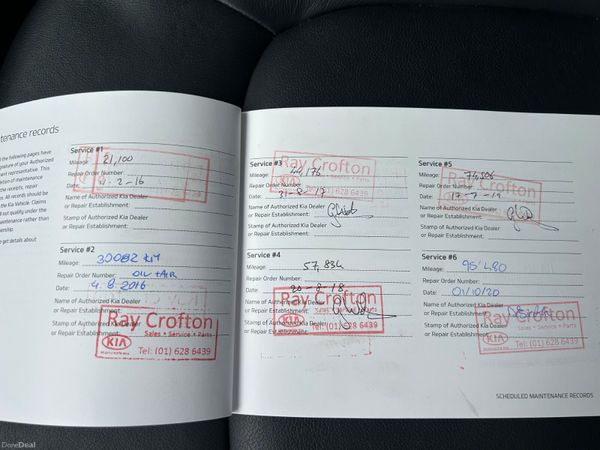 tenance records
the following pages have
gnature of your Authorized
ent representative. This
lation of maintenance
the receipts, repair
. All records should be
the Kia Vehicle. Claims
d not qualify under the
maintenance rather than
to get details about
Service #1
Mileage: 21,100
Repair Order Number:
Date: 2-16
Name of Authorized Kia Dealer
or Repair Establishment:
Stamp of Authorized Kia Dealer
or Repair Establishment:
Service #2
Mileage: 30082 KM
Repair Order Number: OIL + AIR
Date: 4.8.2016
Name of Authorized Kia Dealer
or Repair Establishment:
Stamp of Authorized Kia Dealer
or Repair Establishment:
Ray Crofton
Sales • Service • Parts
KIA Tel: (01) 628 6439
Service #3
Mileage: 44,176
Ray Crofton
Repair Order Number:
KIA (01) 628 6439
Date: 31-8-17
Name of Authorized Kia Dealer
or Repair Establishment:
Stamp of Authorized Kia Dealer
or Repair Establishment:
Service #4
Mileage: 57,834
Repair Order Number:
Date: 20-8-18
Name of Authorized Kia Dealer
or Repair Establishment:
Ray Crofton
Stamp of Authorized Kia Dealer
or Repair Establishment:
KIA Tel: (01) 628 6439
Service #5
Mileage: 74,506
Ray Crofton
Repair Order Number:
Date: 17-7-19
Name of Authorized Kia Dealer
or Repair Establishment:
Stamp of Authorized Kia Dealer
or Repair Establishment:
Service #6
Mileage: 95'480
Repair Order Number:
Date: 01/10/20
Name of Authorized Kia Dealer
or Repair Establishment:
Ray Crofton
Stamp of Authorized Kia Dealer
or Repair Establishment:
KIA Tel: (01) 628 6439
SCHEDULED MAINTENANCE RECORDS
DoneDeal